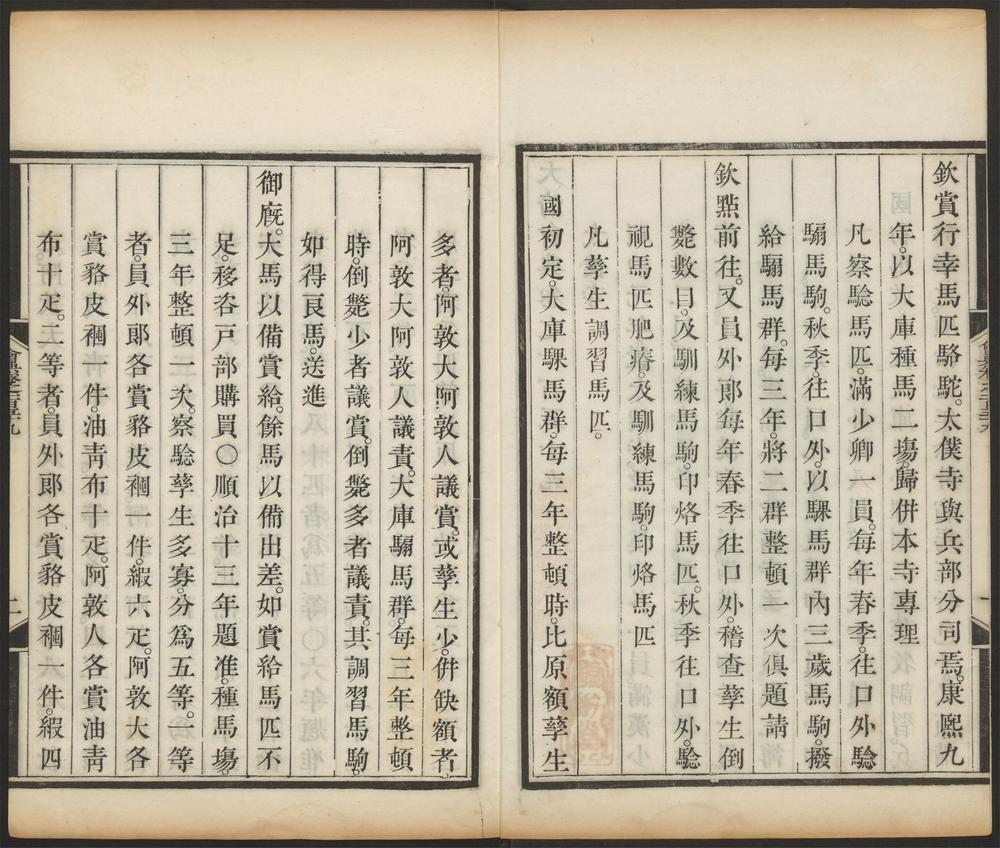 欽賞行幸馬匹駱駝。太僕寺與兵部分司焉。康熙九
年。以大庫種馬二場。歸併本寺專理
凡察騐馬匹。滿少卿一員。每年春季。往口外騐
騸馬駒。秋季。往口外。以騍馬群內三歲馬駒。撥
給騸馬群。每三年。將二群整頓一次俱題請
欽點前往。又員外郎每年春季往口外。稽查孳生倒
斃數目。及馴練馬駒。印烙馬匹。秋季往口外。騐
視馬匹肥瘠。及馴練馬駒。印烙馬匹
凡孳生調習馬匹。
國初定。大庫騍馬群。每三年整頓時。比原額孳生
多者。阿敦大阿敦人議賞。或孳生少。併缺額者
阿敦大阿敦人議責。大庫騸馬群。每三年整頓
時。倒斃少者議賞。倒斃多者議責。其調習馬駒。
如得良馬。送進
御廐。大馬以備賞給。餘馬以備出差。如賞給馬匹不
足。移咨戸部購買〇順治十三年題准。種馬場。
三年整頓一次。察騐孳生多寡。分爲五等。一等
者。員外郎各賞貉皮褂一件。緞六疋。阿敦大各
賞貉皮褂一件。油靑布十疋。阿敦人各賞油靑
布十疋。二等者。員外郎各賞貉皮褂一件。緞四
二